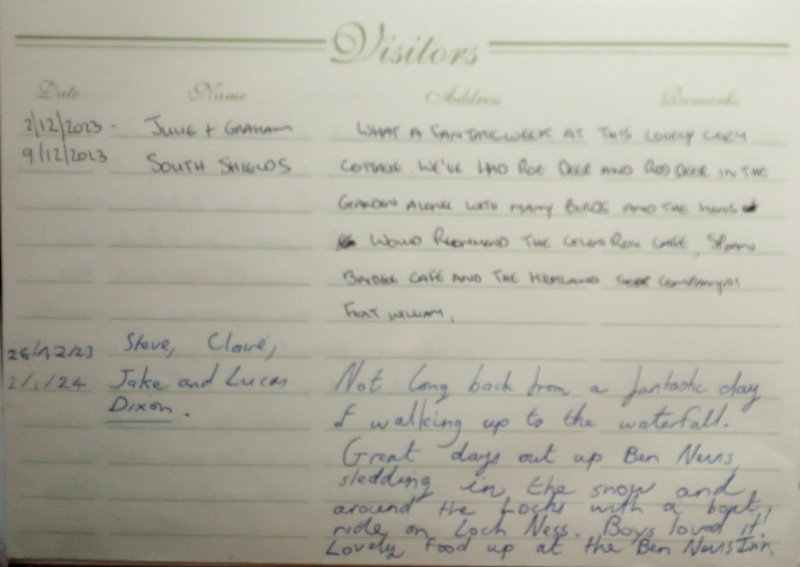 Visitors
Date Name Address Remarks
2/12/2023 - JULIE + GRAHAM WHAT A FANTASTIC WEEK AT THIS LOVELY COSY
9/12/2023 SOUTH SHIELDS COTTAGE WE'VE HAD ROE DEER AND RED DEER IN THE
GARDEN ALONG WITH MANY BIRDS AND THE HENS
WOULD RECOMMEND THE CAFE,
BADGER CAFE AND THE HIGHLAND SOAP COMPANY AT
FORT WILLIAM.
Steve, Claire,
28/12/23
2/1/24 Jake and Lucas Not long back from a fantastic day
Dixon. of walking up to the waterfall.
Great days out up Ben Nevis,
sledding in the snow and
around the Lochs with a boat
ride on Loch Ness. Boys loved it!!
Lovely food up at the Ben Nevis Inn.